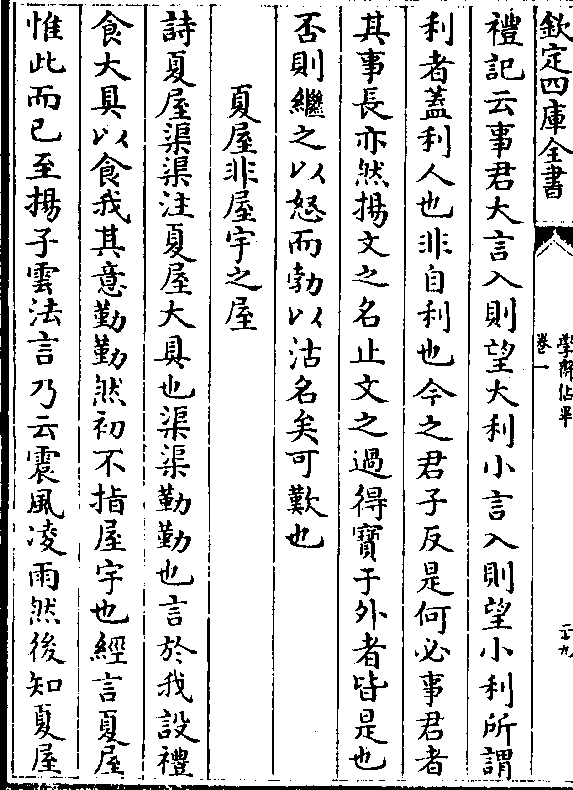 欽定四庫全書
卷一
學齋佔畢
二十九
禮記云事君大言入則望大利小言入則望小利所謂
利者蓋利人也非自利也今之君子反是何必事君者
其事長亦然揚文之名止文之過得寳于外者皆是也
否則繼之以怒而勃以沽名矣可歎也
夏屋非屋宇之屋
詩夏屋渠渠注夏屋大具也渠渠勤勤也言於我設禮
食大具以食我其意勤勤然初不指屋宇也經言夏屋
惟此而已至揚子雲法言乃云震風凌雨然後知夏屋